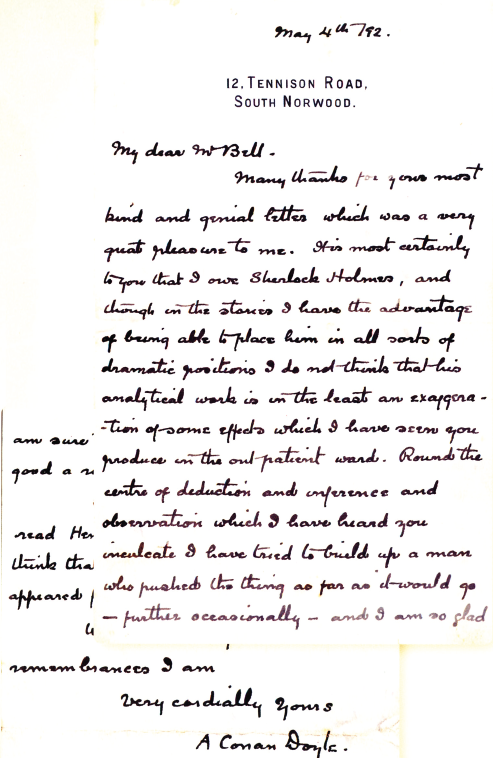 May 4th /92.
12, TENNISON ROAD,
SOUTH NORWOOD.
My dear Mr Bell.
Many thanks for your most
kind and genial letter which was a very
great pleasure to me. It is most certainly
to you that I owe Sherlock Holmes, and
though in the stories I have the advantage
of being able to place him in all sorts of
dramatic positions I do not think that his
analytical work is in the least an exaggera-
-tion of some effects which I have seen you
produce in the out patient ward. Round the
centre of deduction and inference and
observation which I have heard you
inculcate I have tried to build up a man
who pushed the thing as far as it would go
- further occasionally - and I am so glad
am sure
good a
read Her
think tha
appeared
remembrances I am
Very cordially yours
A Conan Doyle.